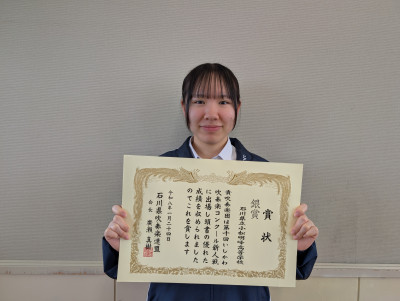 賞状
銀賞
石川県立小松明峰高等学校
貴吹奏楽団は第十回いしかわ
吹奏楽コンクール新人戦
に出場し頭書の優れた
成績を収められました
のでこれを賞します
令和八年一月二十四日
石川県吹奏楽連盟
会長